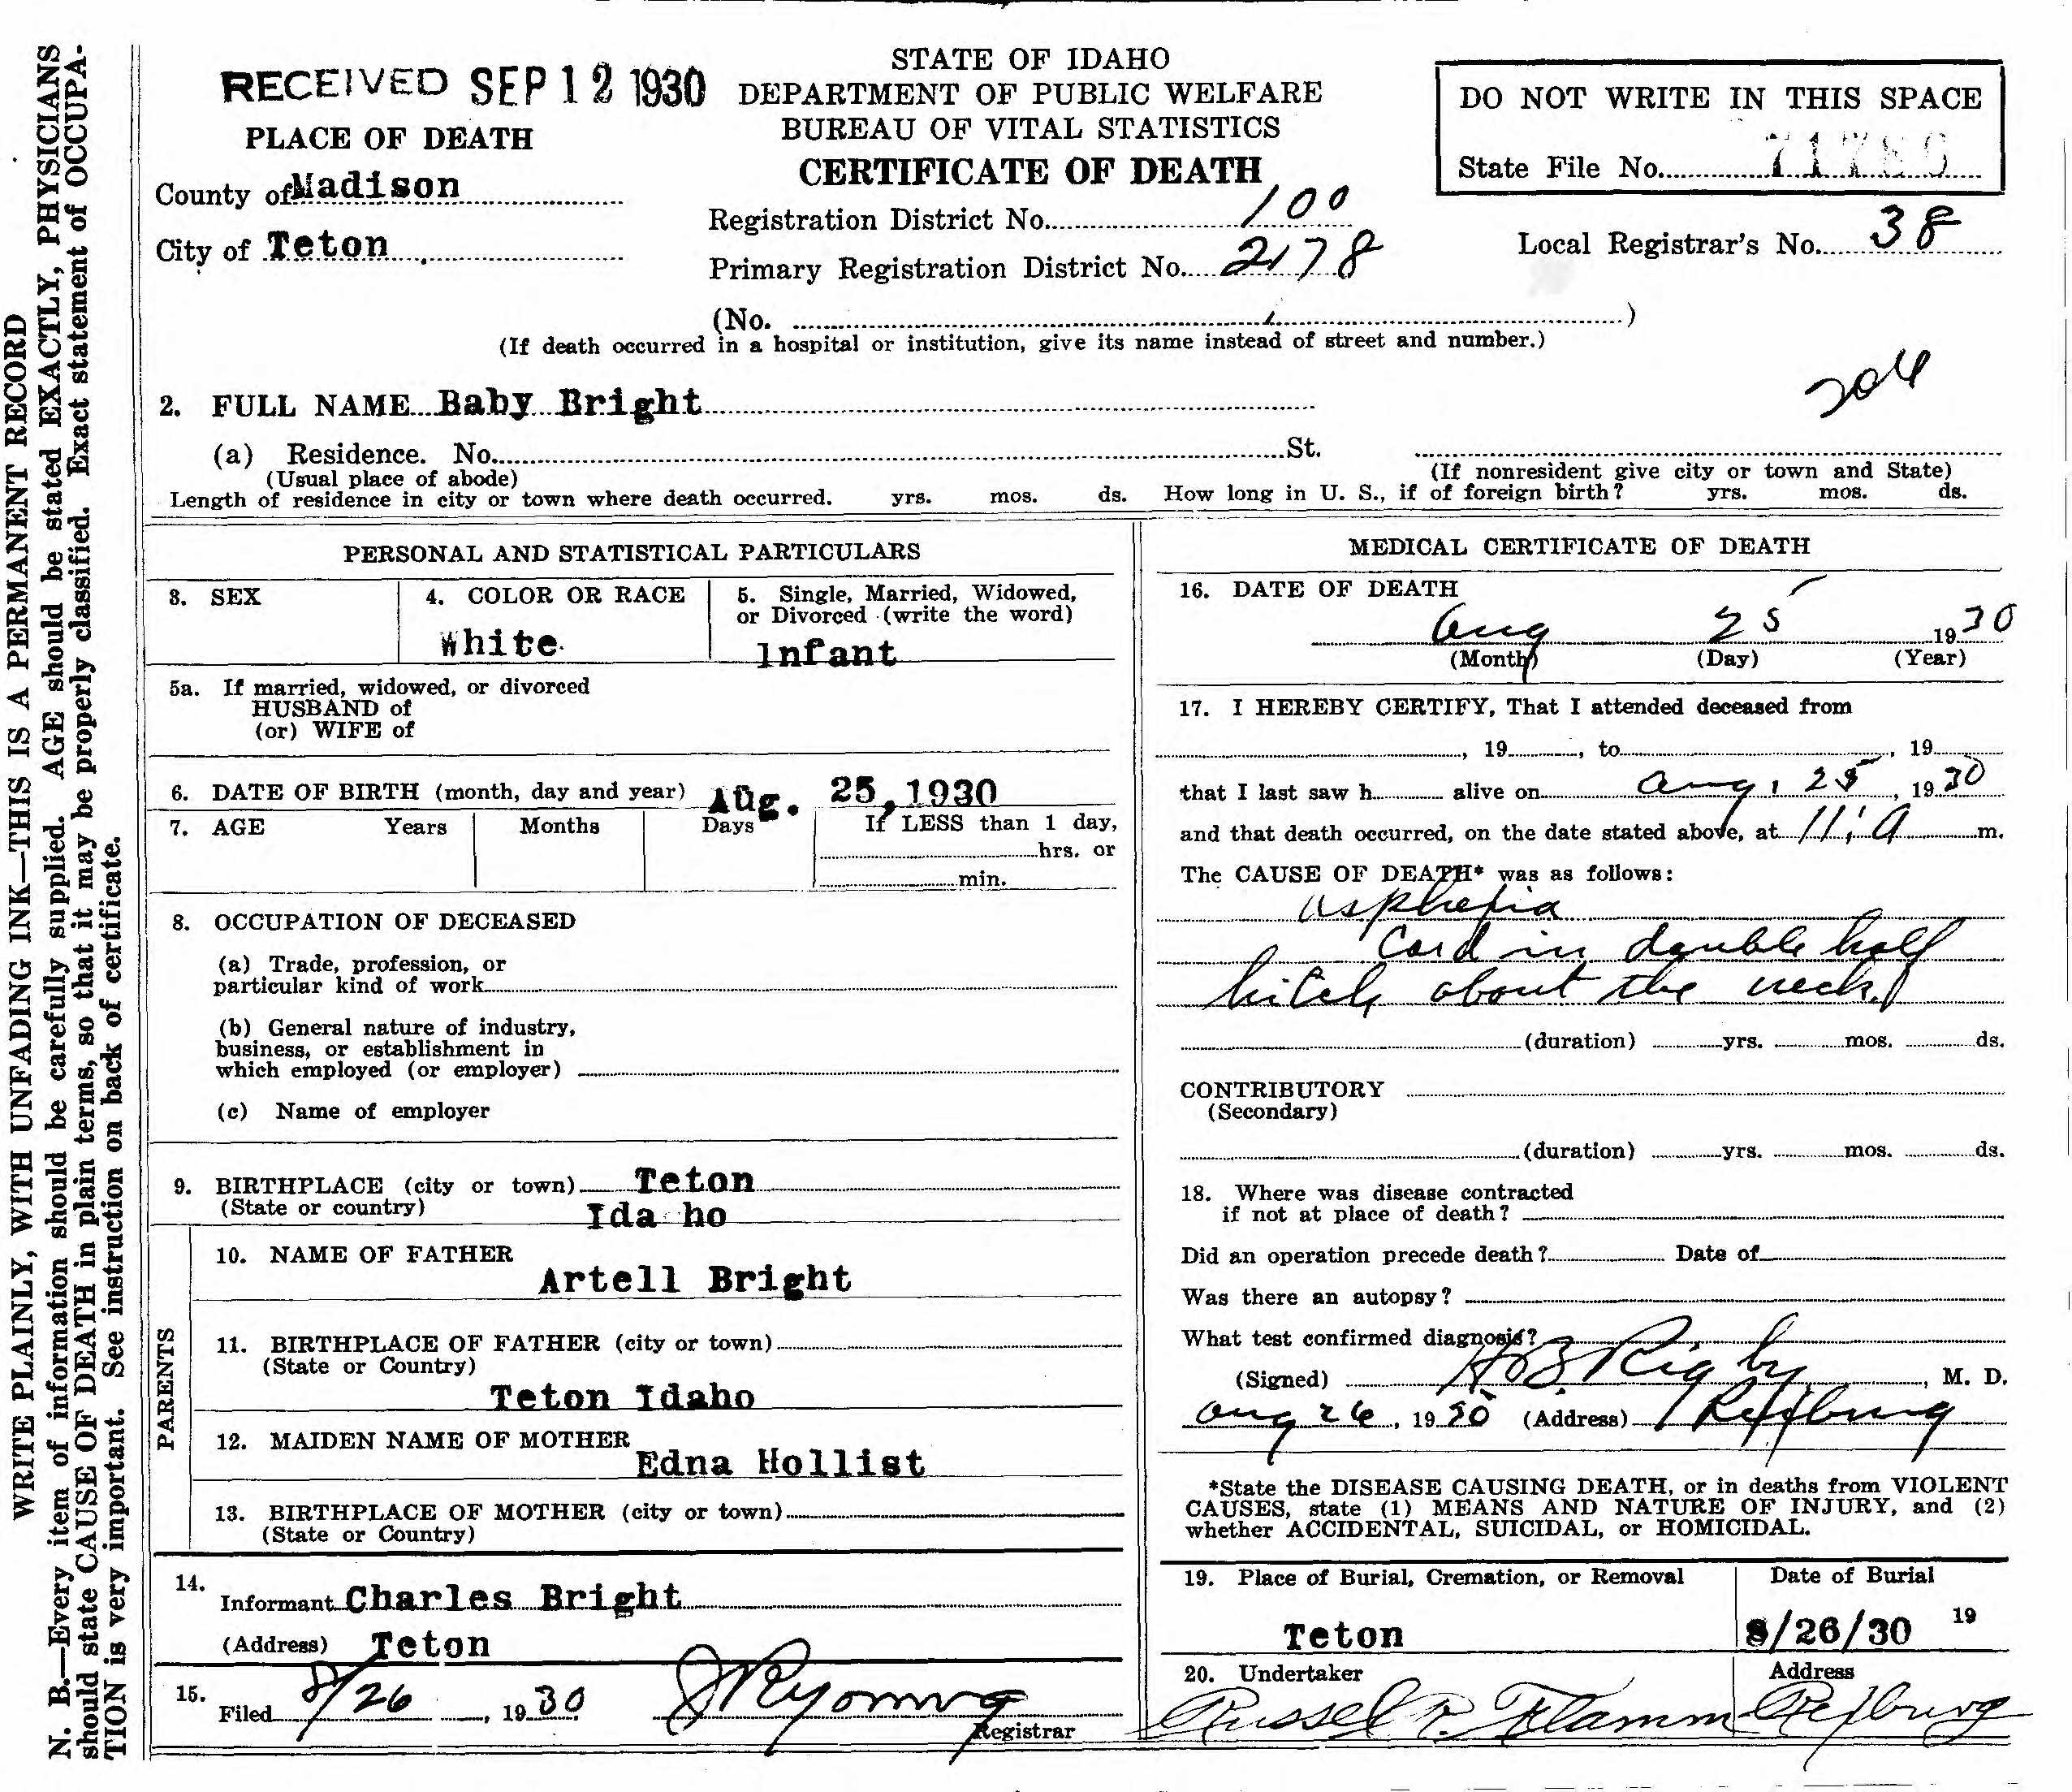 WRITE PLAINLY, WITH UNFADING INK—THIS IS A PERMANENT RECORD
N. B.—Every item of information should be carefully supplied. AGE should be stated EXACTLY, PHYSICIANS
should state CAUSE OF DEATH in plain terms, so that it may be properly classified. Exact statement of OCCUPA-
TION is very important. See instruction on back of certificate.
RECEIVED SEP 12 1930
STATE OF IDAHO
DEPARTMENT OF PUBLIC WELFARE
BUREAU OF VITAL STATISTICS
CERTIFICATE OF DEATH
DO NOT WRITE IN THIS SPACE
State File No.
PLACE OF DEATH
County of Madison
City of Teton
Registration District No. 100
Primary Registration District No. 2178
Local Registrar's No. 38
(No. )
(If death occurred in a hospital or institution, give its name instead of street and number.)
2. FULL NAME Baby Bright
(a) Residence. No. St.
(Usual place of abode)
(If nonresident give city or town and State)
Length of residence in city or town where death occurred. yrs. mos. ds. How long in U. S., if of foreign birth? yrs. mos. ds.
PERSONAL AND STATISTICAL PARTICULARS
3. SEX
4. COLOR OR RACE
White
5. Single, Married, Widowed,
or Divorced (write the word)
Infant
5a. If married, widowed, or divorced
HUSBAND of
(or) WIFE of
6. DATE OF BIRTH (month, day and year) Aug. 25, 1930
7. AGE Years Months Days If LESS than 1 day,
hrs. or
min.
8. OCCUPATION OF DECEASED
(a) Trade, profession, or
particular kind of work
(b) General nature of industry,
business, or establishment in
which employed (or employer)
(c) Name of employer
9. BIRTHPLACE (city or town) Teton
(State or country) Idaho
PARENTS
10. NAME OF FATHER
Artell Bright
11. BIRTHPLACE OF FATHER (city or town)
(State or Country)
Teton Idaho
12. MAIDEN NAME OF MOTHER
Edna Hollist
13. BIRTHPLACE OF MOTHER (city or town)
(State or Country)
14.
Informant Charles Bright
(Address) Teton
15.
Filed 8/26, 1930 J R Young
Registrar
MEDICAL CERTIFICATE OF DEATH
16. DATE OF DEATH
Aug 25 1930
(Month) (Day) (Year)
17. I HEREBY CERTIFY, That I attended deceased from
, 19 , to , 19
that I last saw h alive on Aug, 25, 1930
and that death occurred, on the date stated above, at 11; A m.
The CAUSE OF DEATH* was as follows:
Asphexia
Cord in double half
hitch about the neck.
(duration) yrs. mos. ds.
CONTRIBUTORY
(Secondary)
(duration) yrs. mos. ds.
18. Where was disease contracted
if not at place of death?
Did an operation precede death? Date of
Was there an autopsy?
What test confirmed diagnosis?
(Signed) H B Rigby, M. D.
Aug 26, 1930 (Address) Rexburg
*State the DISEASE CAUSING DEATH, or in deaths from VIOLENT
CAUSES, state (1) MEANS AND NATURE OF INJURY, and (2)
whether ACCIDENTAL, SUICIDAL, or HOMICIDAL.
19. Place of Burial, Cremation, or Removal
Teton
Date of Burial
8/26/30 19
20. Undertaker
Russel Flamm
Address
Rexburg